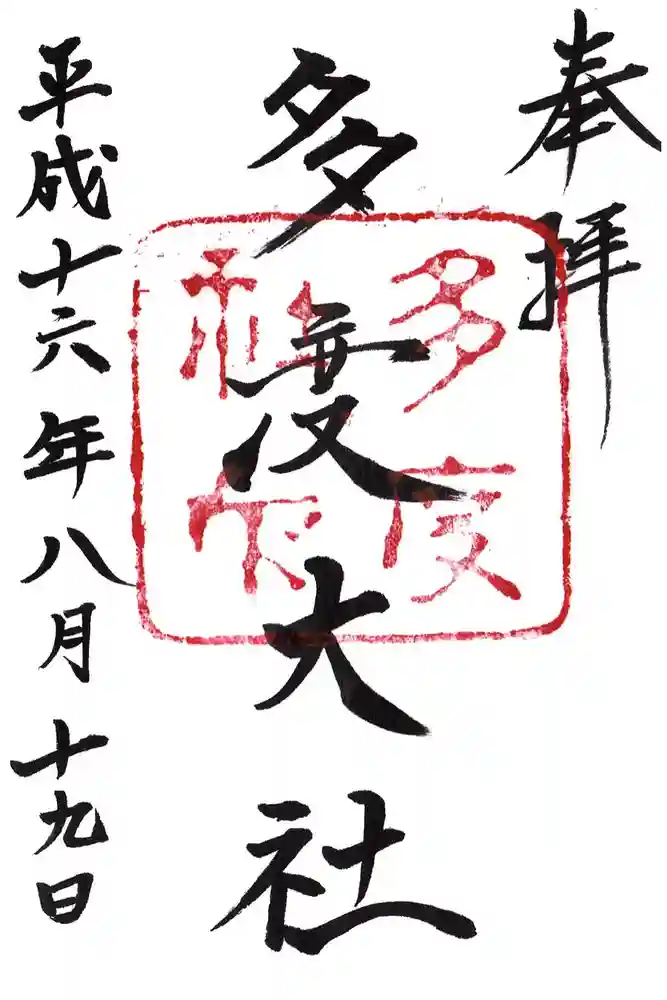 奉拝
多度大社
多度
社印
平成十六年八月十九日